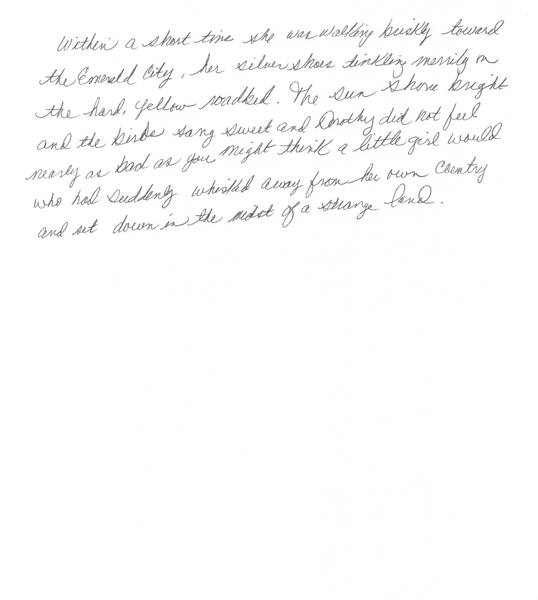 Within a short time she was walking briskly toward
the Emerald City, her silver shoes tinkling merrily on
the hard, yellow roadbed. The sun shone bright
and the birds sang sweet and Dorothy did not feel
nearly as bad as you might think a little girl would
who had suddenly whisked away from her own country
and set down in the midst of a strange land.